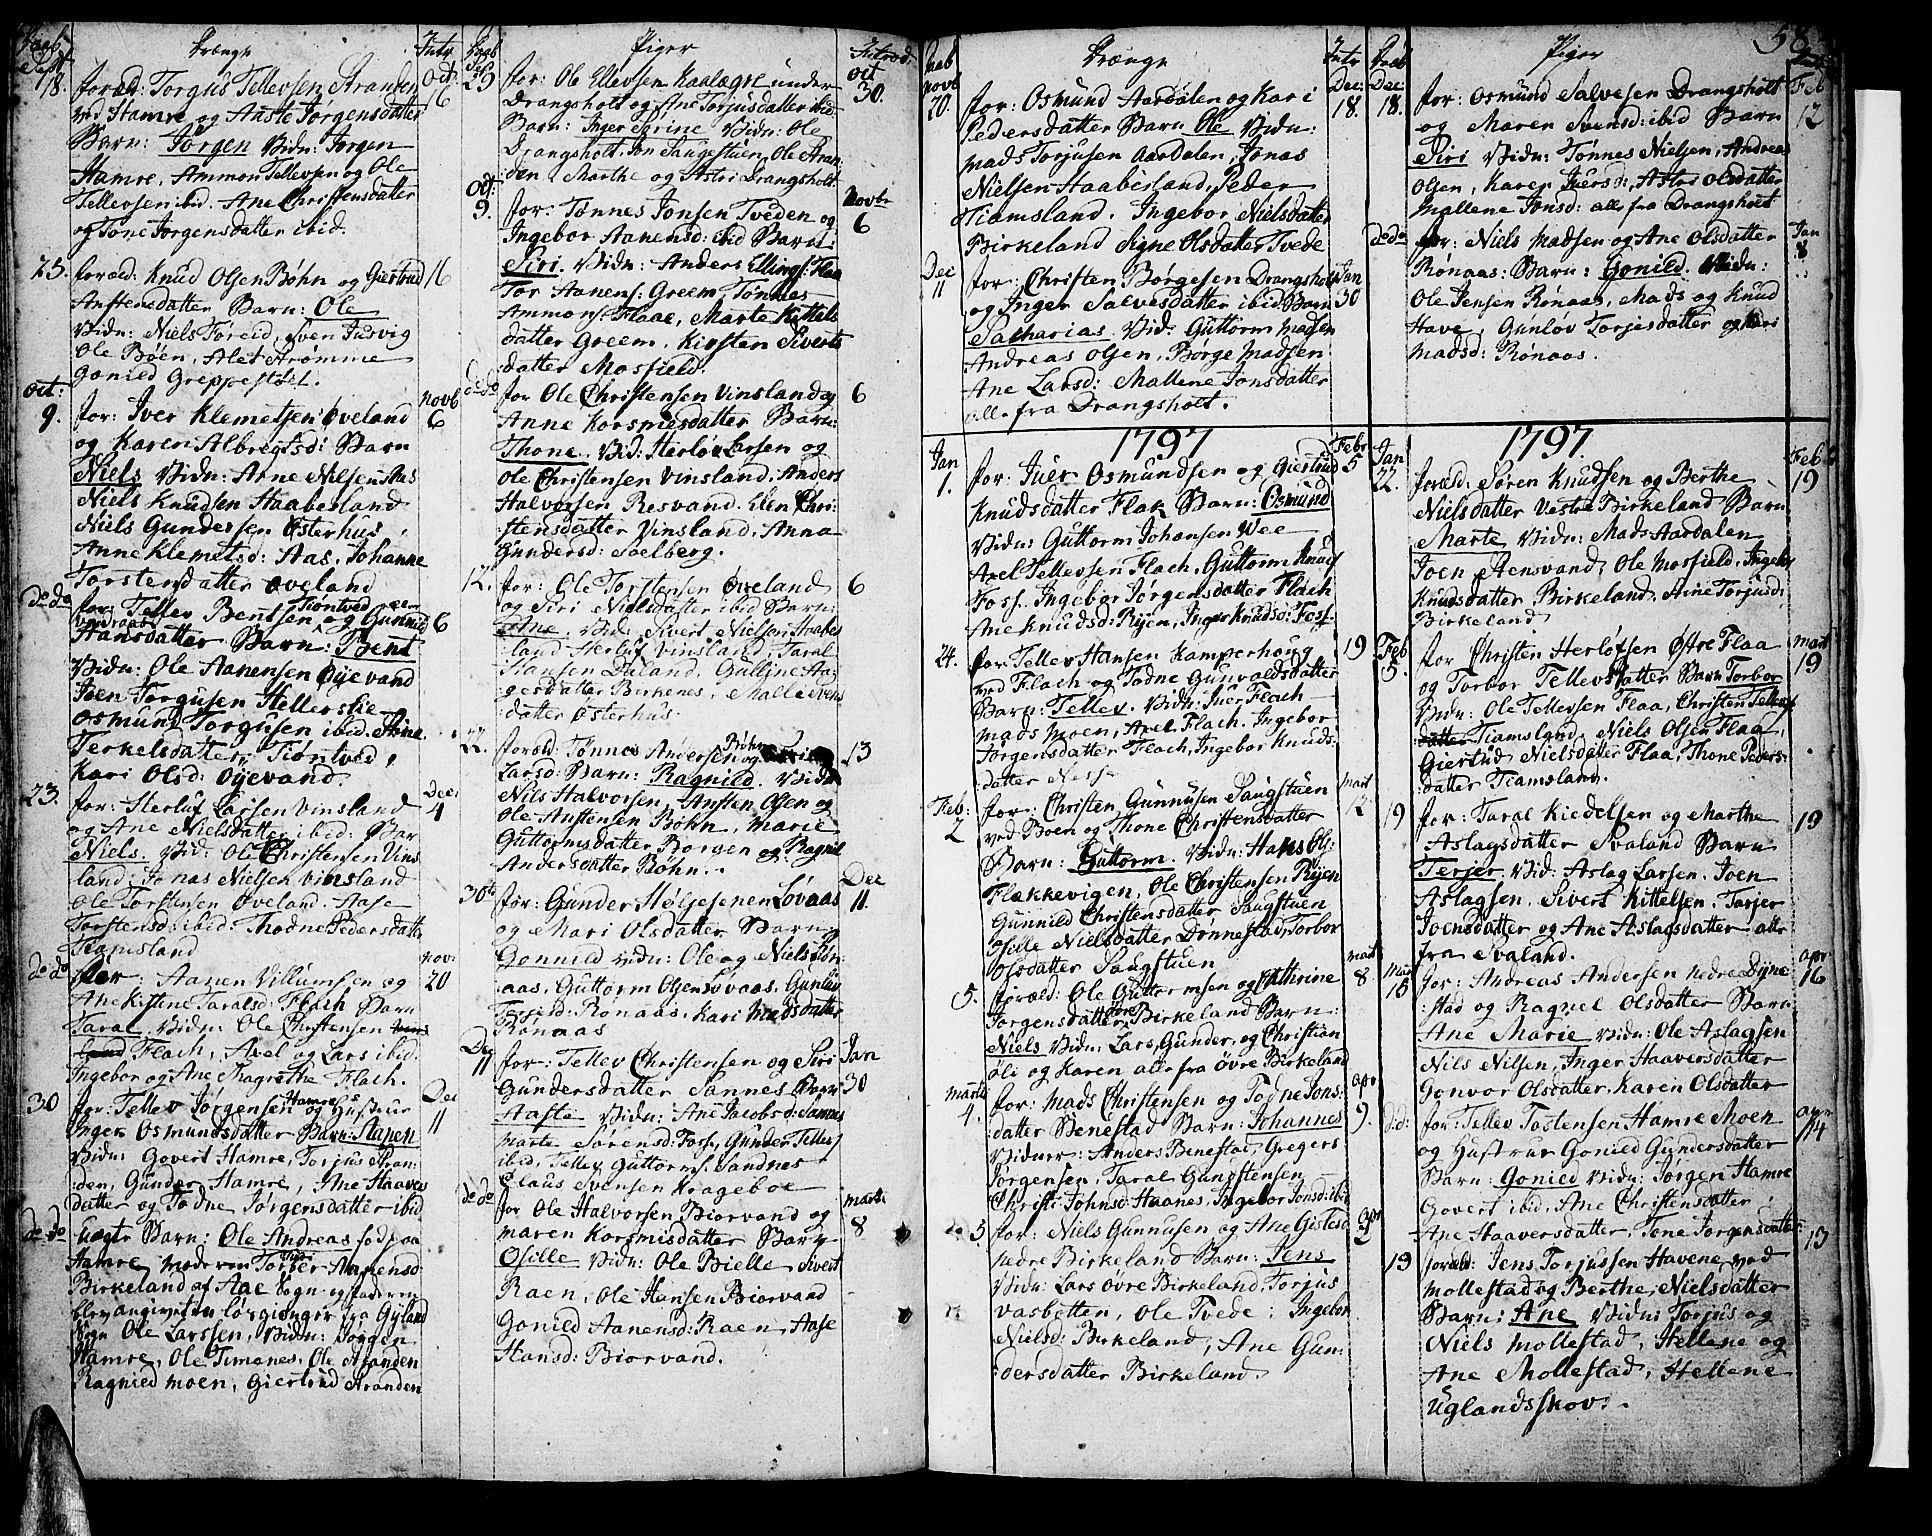 Drænge
Sept
18.
foræld: Torgus Tellevsen Stranden
ved Hamre og Aaste Jørgensdatter
Barn: Jörgen Vidn: Jørgen
Hamre, Ammon Tellevsen og Ole
Tellevsen ibid. Ane Christensdatter
og Tone Jørgensdatter ibid.
Oct. 16
25. foræld: Knud Olsen Bøhn og Giertrud
Anstensdatter Barn: Ole
Vidn: Niels Føreid, Sven Jusvig
Ole Böen, Alet Strømme
Gonild Greppestøl.
16
Oct:
9. for: Iver Klemetsen Øveland
og Karen Albregtsd: Barn
Niels Vidn: Arne Nilsen Aas
Niels Knudsen Haabesland
Niels Gundersen Østerhus
Anne Klemetsd: Aas, Johanne
Torstensdatter Øveland
Novb 6
do do for: Tellev Bentsen Tiontved og Gunnild
Hansdatter Barn: Bent
Vidn: Ole Aanensen Øyevand
Joen Torgusen Hellerslie
Osmund Torgusen ibid. Stine
Terkelsdatter Tiontved,
Kari Olsd: Øyevand.
6
23. for: Herluf Larsen Vinsland
og Ane Nielsdatter ibid: Bar
Niels. Vid: Ole Christensen Vins
land: Jonas Nielsen Vinsland
Ole Torstensen Øveland. Aase
Torstensd: ibid: Thodne Pedersdatter
Tiamsland
Dec: 4
do do for: Aanen Villumsen og
Ane Kistine Taralsd: Flach Barn
Taral. Vidn: Ole Christensen Vins
land Flach, Axel og Lars ibid.
Ingebor og Ane Magrethe Flach.
Nov: 20
30 for: Tellev Jørgensen Hamre og Hustrue
Inger Osmundsdatter Barn: Stapen
Vidn: Govert Hamre, Torjus Stran
den, Gunder Hamre, Ane Haavers
datter og Todne Jørgensdatter ibid
Dec 11
do do Uægte Barn: Ole Andreas fød paa
Hamre, moderen Torber Aanensd
Birkeland af Aae Sogn og faderen
blev angivet en lösgienger fra Gyland
Sogn Ole Larssen, Vidn: Jørgen
Hamre, Ole Timenes, Ole Stranden
Ragnied Moen, Giertrud Stranden
Piger
29 for: Ole Ellevsen Kaalagre under
Drangsholt og Ane Torjusdatter ibid
Barn: Inger Serine Vidn: Ole
Drangsholt, Jon Saugestuen, Ole Stran
den, Marthe og Astri Drangsholt
Oct 30.
Oct:
9. for: Tønnes Jonsen Tveden og
Ingebor Aanensd: ibid Barn:
Siri. Vidn: Anders Ellings: Flaa
Tor Aanens: Greem Tønnes
Ammons: Flaae, Marte Kittels
datter Greem, Kirsten Siverts
datter Mosfield.
Novbr 6
do do for Ole Christensen Vinsland og
Anne Korsmesdatter Barn:
Thone. Vid: Herlöv Larsen og
Ole Christensen Vinsland. Anders
Halvorsen Resvand. Elen Chri
stensdatter Vinsland. Anna
Gundersd: Soelberg.
6
12. for: Ole Torstensen Øveland
og Siri Nielsdatter ibid Barn:
Ane. Vid: Sivert Nielsen Haabes
land Herluf Vinsland, Taral
Hansen Duland, Gulline Aa
gesdatter Birkenes, Malle Svens
datter Østerhus.
6
22. foræld: Tønnes Andersen Bøhn og
Larsd: Barn: Ragnild. Vidn
Nils Halvorsen, Ansten Olsen og
Ole Anstensen Bøhn, Marie
Guttormsdatter Borgen og Ragnil
Andersdatter Bøhn.
13
30te for: Gunder Høljesenen Løvaas
og Mari Olsdatter Barn
Gonnild Vidn: Ole og Niels Røn
aas, Guttorm Olsen Løvaas. Gunløv
Rönaas, Kari Madsdatter
Rönaas
Dec 11.
Dec
11 for: Tellev Christensen og Siri
Gundersdatter Sannes Barn
Aasle Vidn: Ane Jacobsd: Sannes
Marte Sørensd: Foss, Gunder Tellefs
ibid, Tellev Guttorms. Sandnes
Claus Svensen Krageboe
Jan 30
do do for Ole Halvorsen Biorvand og
Maren Korsmisdatter Barn
Osille Vidn: Ole Bielle Sivert
Raen, Ole Hansen Biorvand
Gonild Aanensd: Raen, Aase
Hansd: Biorvand.
Marti 8
58
Drænge
Novb
20. for: Osmund Aardalen og Kari
Pedersdatter Barn Ole Vidn:
Mads Torjusen Aardalen, Jonas
Nielsen Haabesland, Peder
Tiamsland. Ingebor Nielsdatter
Birkeland Signe Olsdatter Tvede
Dec: 18.
Dec
11 for: Christen Børgesen Drangsholt
og Inger Salvesdatter ibid Barn
Sacharias. Vid: Guttorm Madsen
Andreas Olsen, Børge Madsen
Ane Larsd: Mallene Jonsdatter
alle fra Drangsholt.
Jan 30
1797
Jan
1. for: Iver Osmundsen og Giertrud
Knudsdatter Flak Barn: Osmund
Vidn: Guttorm Johansen Wee
Axel Tellevsen Flach, Guttorm Knuds
Foss. Ingebor Jørgensdatter Flach
Ane Knudsd: Ryen, Inger Knudsd: Foss.
Febr 5
24. for: Tellev Hansen Kamperhoug
ved Flach og Todne Gunvaldsdatter
Barn: Tellev. Vidn: Iver Flach
Mads Moen, Axel Flach. Ingebor
Jørgensdatter Flach, Ingebor Knuds
datter Nesse
19
Feb:
2 for: Christen Gunnusen Saugstuen
ved Boen og Thone Christensdatter
Barn: Guttorm. Vidn: Hans Ols:
Flækkevigen, Ole Christensen Ryen
Gunnild Christensdatter Saugstuen
Osille Nielsdatter Dønnestad, Torbor
Olsdatter Saugstuen
Mart 12
5. foræld: Ole Guttormsen og Kathrine
Jørgensdatter övre Birkeland Barn:
Niels Vidn: Lars, Gunder, og Christian
Oli og Karen alle fra øvre Birkeland
Mart 8
Marti
4. for: Mads Christensen og Todne Jons:
datter Benestad Barn: Johannes
Vidner: Anders Benestad, Gregers
Jörgensen, Taral Gunstensen
Christi Johnsd: Haanes, Ingebor Jonsd: ibid
Apr 9.
do 5. for: Niels Gunnusen og Ane Gistesd
nedre Birkeland Barn: Jens
Vidn: Lars övre Birkeland, Torjus
Vasbotten, Ole Tvede, Ingebor
Nielsd: Birkeland, Ane Gun
dersdatter Birkeland.
Apr 2
Piger
Dec:
18. for: Osmund Salvesen Drangsholt
og Maren Svensd: ibid Barn
Siri Vidn: Tønnes Nielsen, Andreas
Olsen, Karen Iversd:, Astri Olsdatter
Mallene Jonsd: alle fra Drangsholt
Feb 12
do do for: Niels Madsen og Ane Olsdatter
Rønaas: Barn: Gonild. Vidn:
Ole Jensen Rönaas, Mads og Knud
Have, Gunløv Torjesdatter og Kari
Madsd: Rønaas.
Jan 8
1797
Jan
22. foræld: Søren Knudsen og Berthe
Nielsdatter Vestre Birkeland Barn
Marte Vidn: Mads Aardalen
Joen Stensvand, Ole Mosfield, Ingebor
Knudsdatter Birkeland. Stine Torjusd:
Birkeland
Feb 19
Feb
5. for Christen Herlöfsen Østre Flaa
og Torbor Tellevsdatter Barn Torbor
Vidn: Ole Tellevsen Flaa, Christen Tellevs
datter Tiamsland, Niels Olsen Flaa,
Giertrud Nielsdatter Flaa, Thone Peders
datter Tiamsland.
Mart 19
19 for: Taral Kiedelsen og Marthe
Aslagsdatter Svaland Barn
Terjer Vid: Aslag Larsen. Joen
Aslagsen, Sivert Kittelsen. Tarjer
Joensdatter og Ane Aslagsdatter alle
fra Svaland.
19
Mart
15 for: Andreas Andersen nedre Øyne
stad og Ragnel Olsdatter Barn
Ane Marie Vidn: Ole Aslagsen
Nils Nilsen, Inger Haaversdatter
Gonvor Olsdatter, Karen Olsdatter
Apr 16
did: for: Tellev Tostensen Hamre Moen
og Hustrue Gonild Gundersdatter
Barn: Gonied Vidn: Jørgen Hamre
Govert ibid, Ane Christensdatter,
Ane Haaversdatter, Tone Jørgensdatter
Apr 14
19 foræld: Jens Torjussen Havene ved
Mollestad og Berthe Nielsdatter
Barn: Ane Vidn: Torjus og
Niels Mollestad, Hellene og
Ane Mollestad, Hellene
Uglandsskov.
13